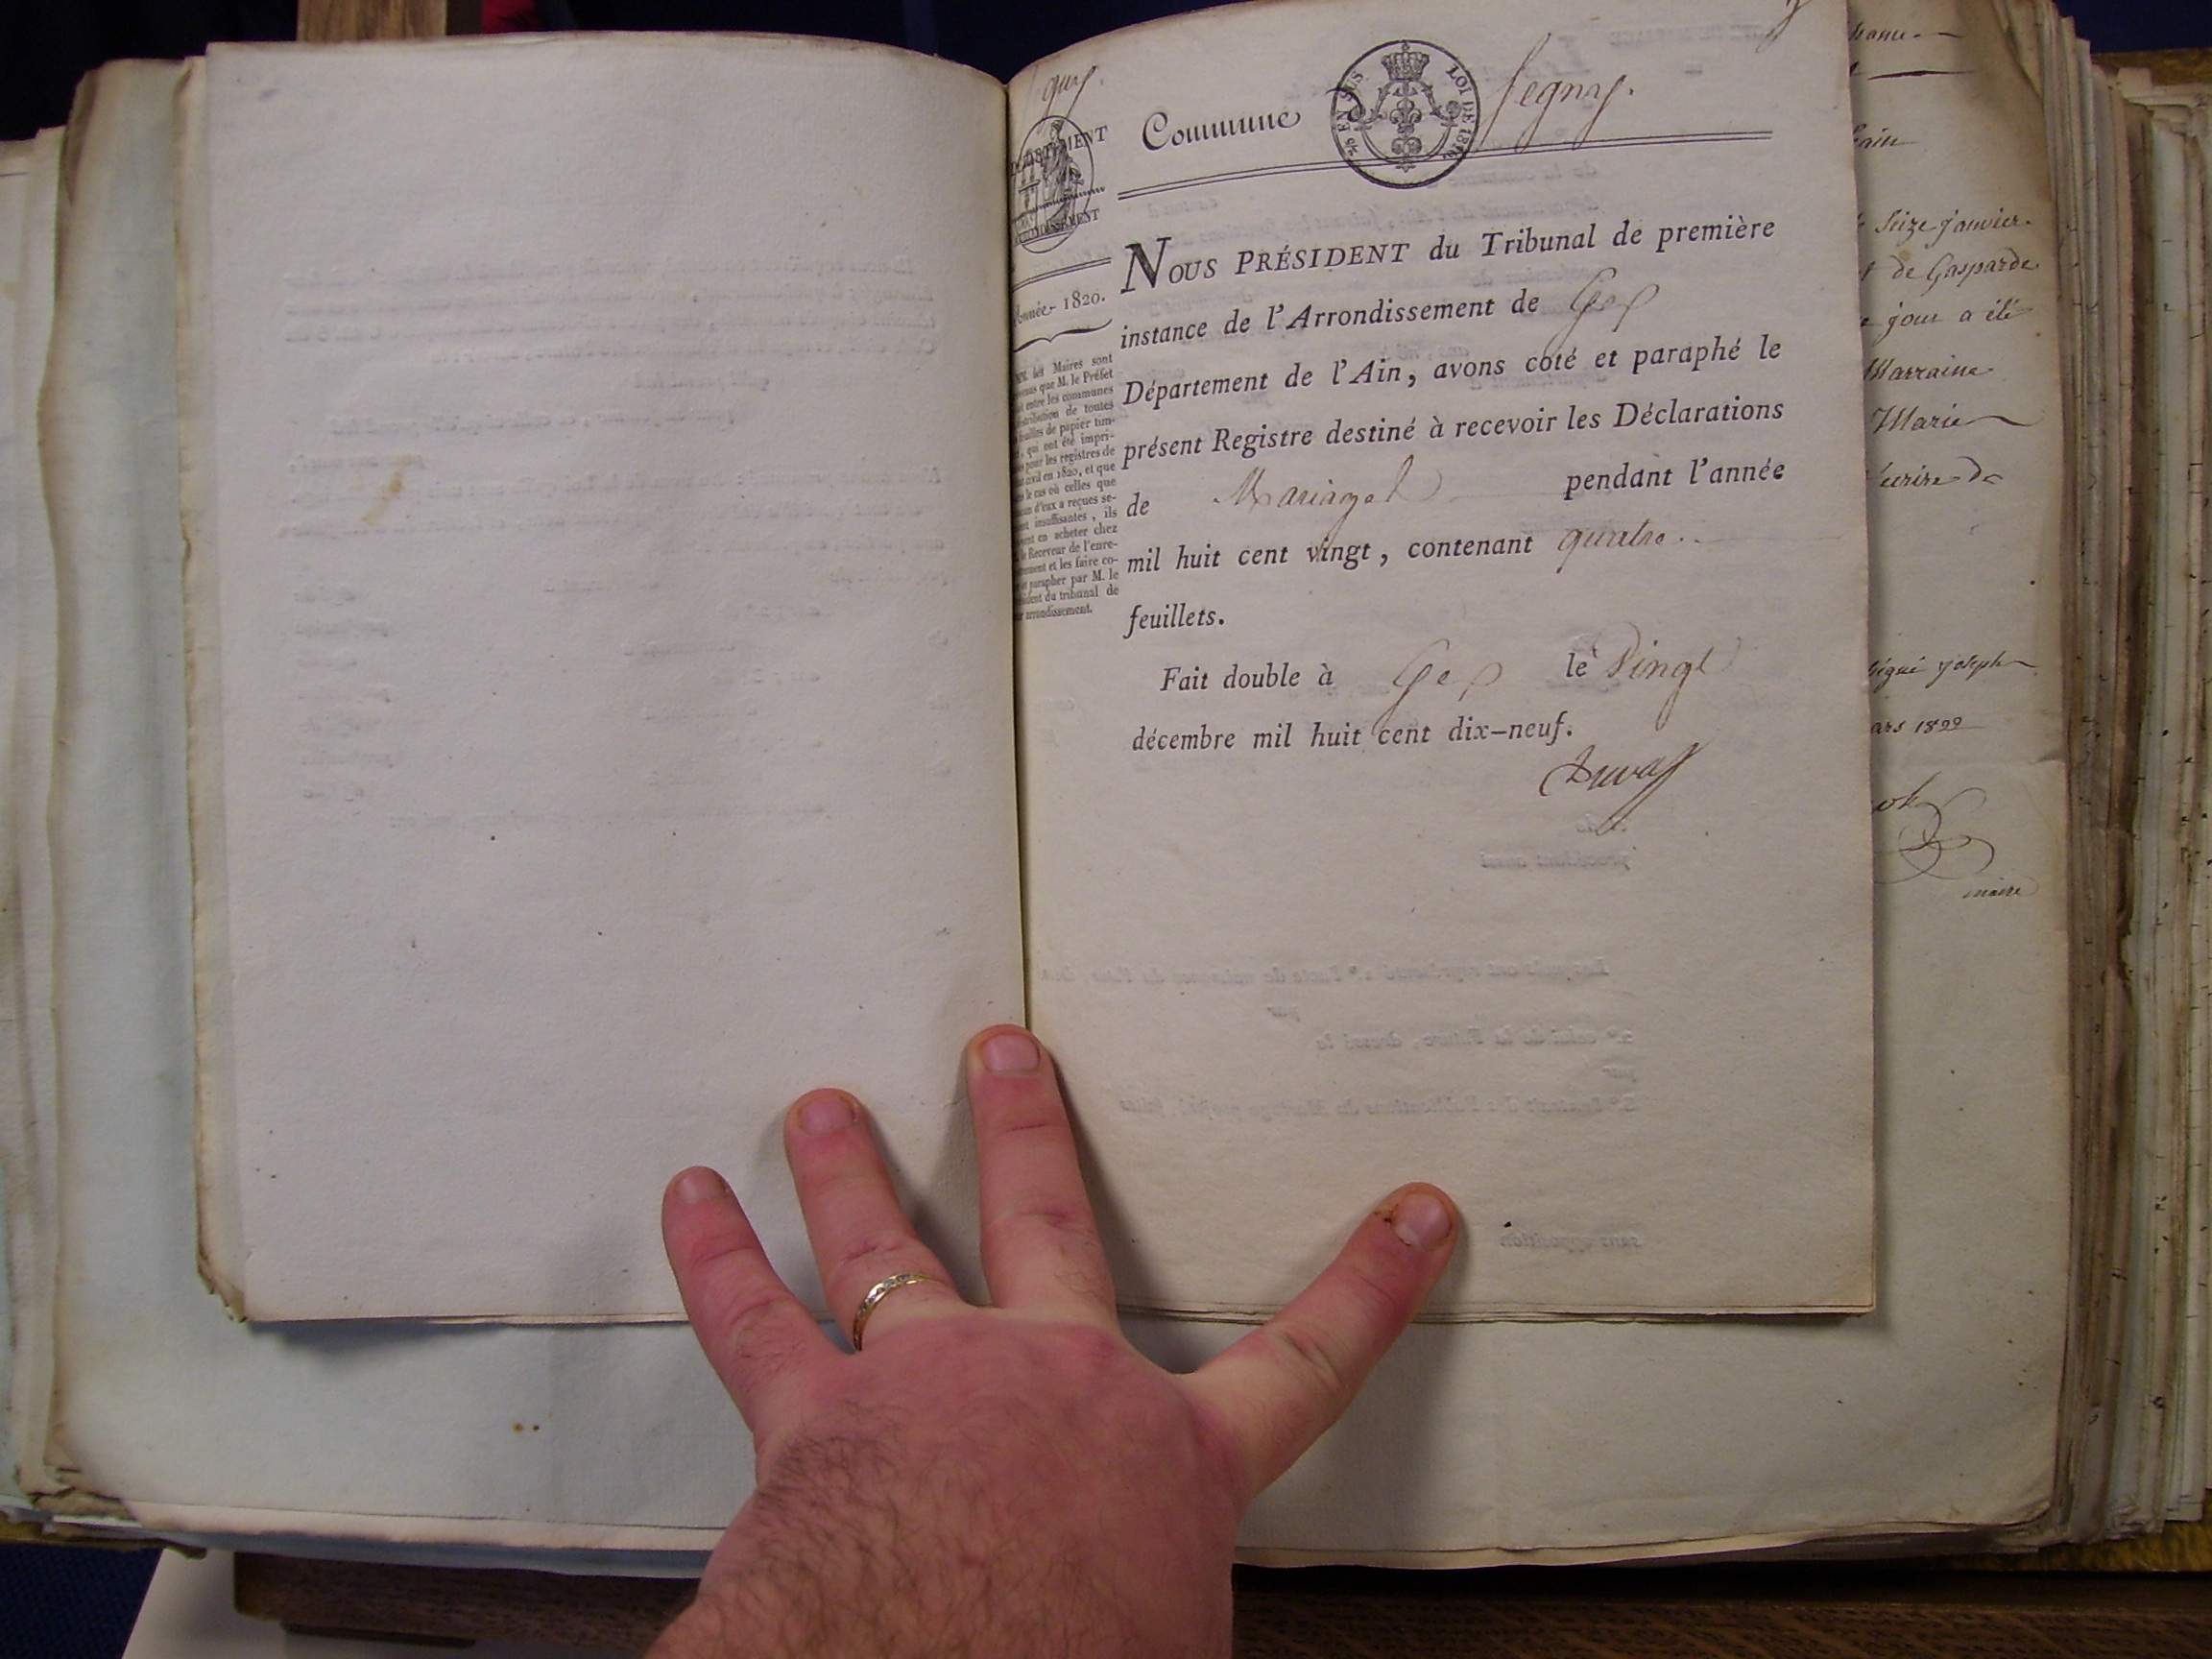 DÉPARTEMENT
ARRONDISSEMENT
Année 1820.
MM. les Maires sont
que M. le Préfet
entre les communes
distribution de toutes
feuilles de papier tim-
, qui ont été impri-
pour les registres de
civil en 1820, et que
le cas où celles que
d'eux a reçues se-
insuffisantes, ils
en acheter chez
le Receveur de l'enre-
et les faire co-
parapher par M. le
du tribunal de
arrondissement.
Commune Segny.
EN SUS LOI DE 1816
NOUS PRÉSIDENT du Tribunal de première
instance de l'Arrondissement de Gex
Département de l'Ain, avons coté et paraphé le
présent Registre destiné à recevoir les Déclarations
de Mariages pendant l'année
mil huit cent vingt, contenant quatre
feuillets.
Fait double à Gex le Vingt
décembre mil huit cent dix-neuf.
Seize janvier
de Gasparde
jour a été
Marraine
Marie
écrire de
signé joseph
mars 1822
maire